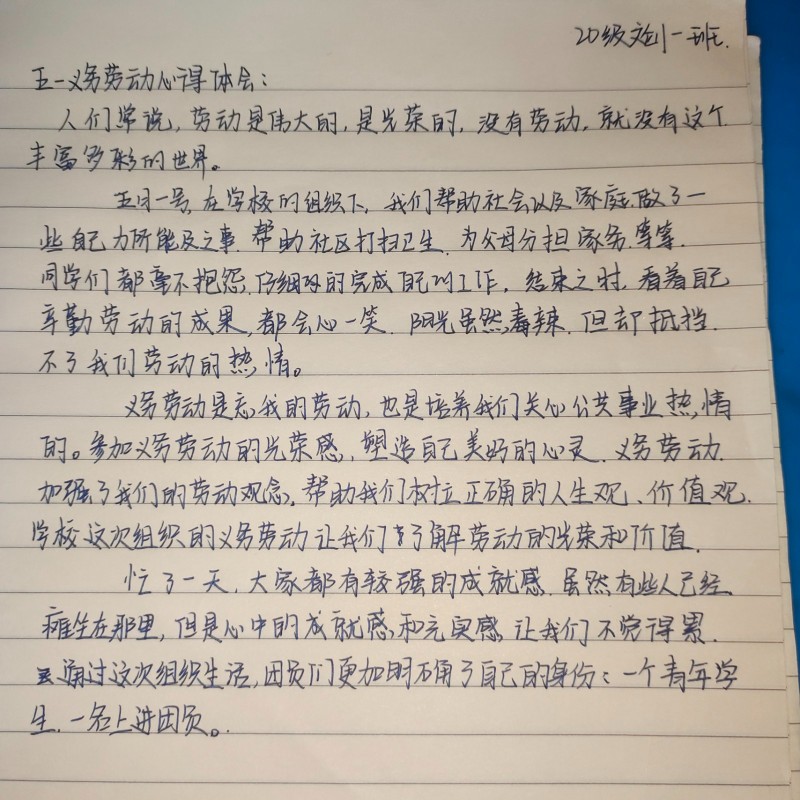 20级文创一班.
五一义务劳动心得体会：
人们常说，劳动是伟大的，是光荣的，没有劳动，就没有这个
丰富多彩的世界。
五月一号，在学校的组织下，我们帮助社会以及家庭做了一
些自己力所能及之事.帮助社区打扫卫生.为父母分担家务.等等.
同学们都毫不抱怨.仔细的完成自己的工作.结束之时.看着自己
辛勤劳动的成果，都会心一笑.阳光虽然毒辣.但却抵挡
不了我们劳动的热情。
义务劳动是忘我的劳动，也是培养我们关心公共事业热情
的。参加义务劳动的光荣感，塑造自己美好的心灵.义务劳动
加强了我们的劳动观念，帮助我们树立正确的人生观、价值观.
学校这次组织的义务劳动让我们了解劳动的光荣和价值.
忙了一天.大家都有较强的成就感.虽然有些人已经
瘫坐在那里，但是心中的成就感和充实感让我们不觉得累.
通过这次组织生活，团员们更加明确了自己的身份：一个青年学
生.一名上进团员。